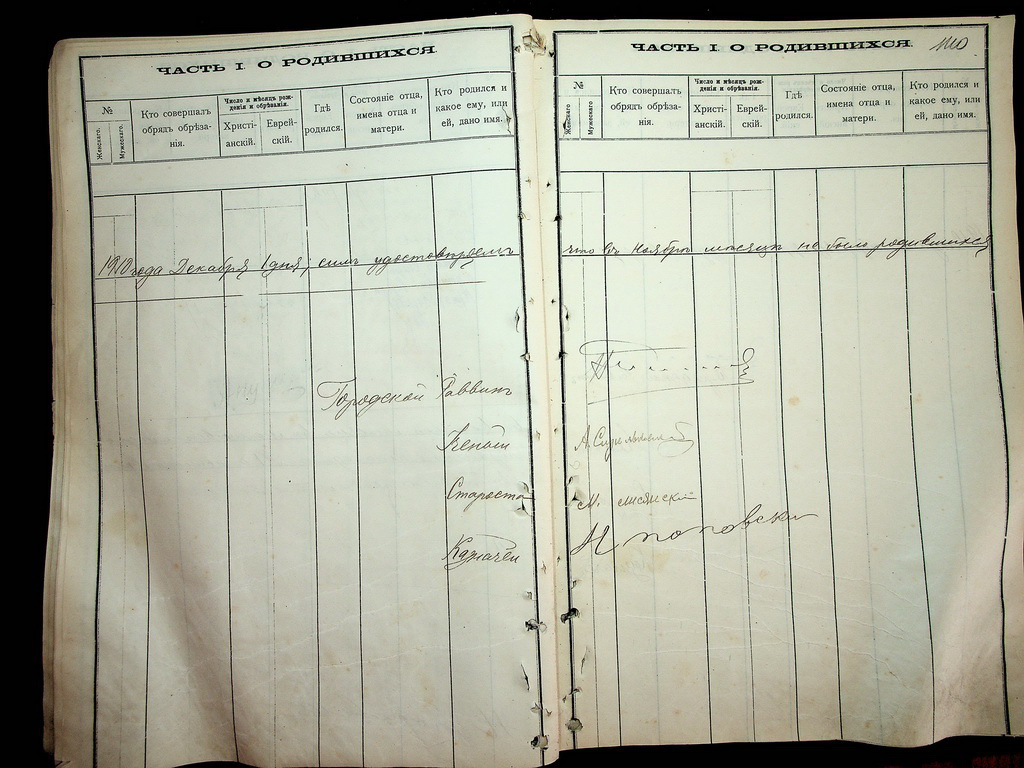 ЧАСТЬ I. О РОДИВШИХСЯ.
№
Женскаго.
Мужескаго.
Кто совершалъ обрядъ обрѣза-
нія.
Число и мѣсяцъ рож-
денія и обрѣзанія.
Христі-
анскій.
Еврей-
скій.
Гдѣ
родился.
Состояніе отца,
имена отца и
матери.
Кто родился и
какое ему, или
ей, дано имя.
1910 года Декабря 1 дня, симъ удостовѣряемъ
Городской Раввинъ
Староста
Казначей
ЧАСТЬ I. О РОДИВШИХСЯ.
№
Женскаго.
Мужескаго.
Кто совершалъ
обрядъ обрѣза-
нія.
Число и мѣсяцъ рож-
денія и обрѣзанія.
Христі-
анскій.
Еврей-
скій.
Гдѣ
родился.
Состояніе отца,
имена отца и
матери.
Кто родился и
какое ему, или
ей, дано имя.
что въ Ноябрѣ мѣсяцѣ не было родившихся
А.
М.